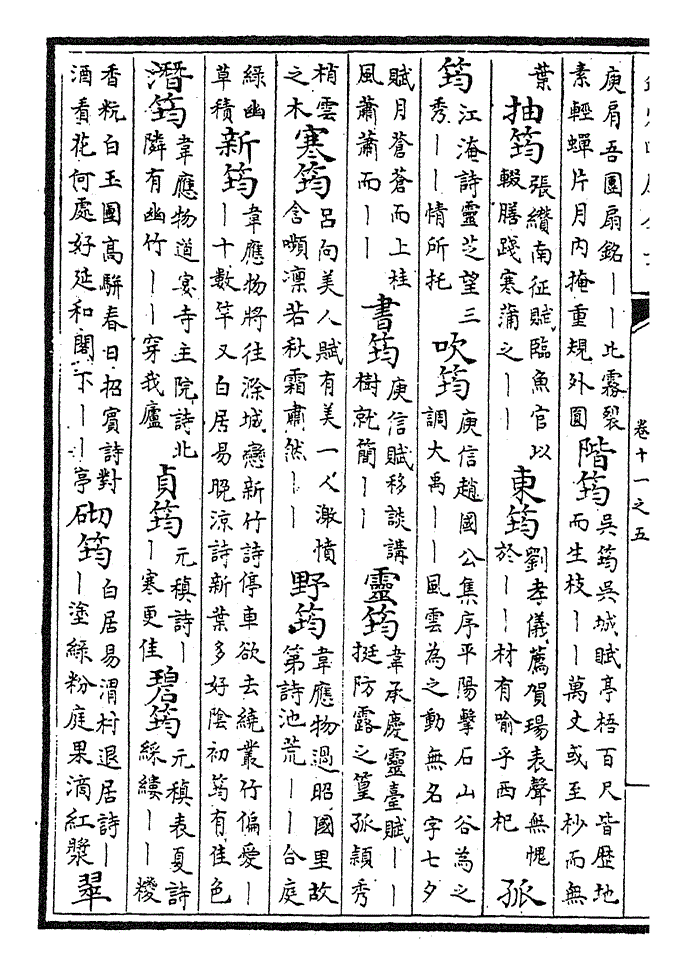 卷十一之五
庾肩吾團扇銘丨丨北霧裂
素輕蟬片月内掩重規外圓
階筠
吳筠吳城賦亭梧百尺皆歴地
而生枝丨丨萬丈或至杪而無
葉
抽筠
張纘南征賦臨魚官以
輟膳踐寒蒲之丨丨
東筠
劉孝儀薦賀瑒表聲無愧
於丨丨材有喻乎西杞
孤
筠
江淹詩靈芝望三
秀丨丨情所托
吹筠
庾信趙國公集序平陽擊石山谷為之
調大禹丨丨風雲為之動無名字七夕
賦月蒼蒼而上桂
風蕭蕭而丨丨
書筠
庾信賦移談講
樹就簡丨丨
靈筠
韋承慶靈臺賦丨丨
挺防露之篁孤頴秀
梢雲
之木
寒筠
呂向美人賦有美一人激憤
含嚬凛若秋霜肅然丨丨
野筠
韋應物過昭國里故
第詩池荒丨丨合庭
綠幽
草積
新筠
韋應物將往滁城戀新竹詩停車欲去繞叢竹偏愛丨
丨十數竿又白居易晚涼詩新葉多好陰初筠有佳色
潛筠
韋應物道宴寺主院詩北
隣有幽竹丨丨穿我廬
貞筠
元稹詩丨
丨寒更佳
碧筠
元稹表夏詩
綵縷丨丨糭
香秔白玉團高駢春日招賓詩對
酒看花何處好延和閣下丨丨亭
砌筠
白居易渭村退居詩丨
丨塗綠粉庭果滴紅漿
翠